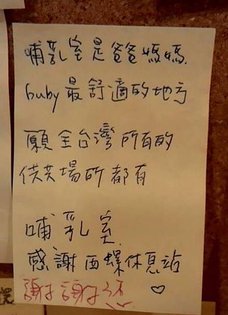 哺乳室是爸爸媽媽
buby最舒適的地方
願全台灣所有的
供共場所都有
哺乳室
感謝西螺休息站
謝謝